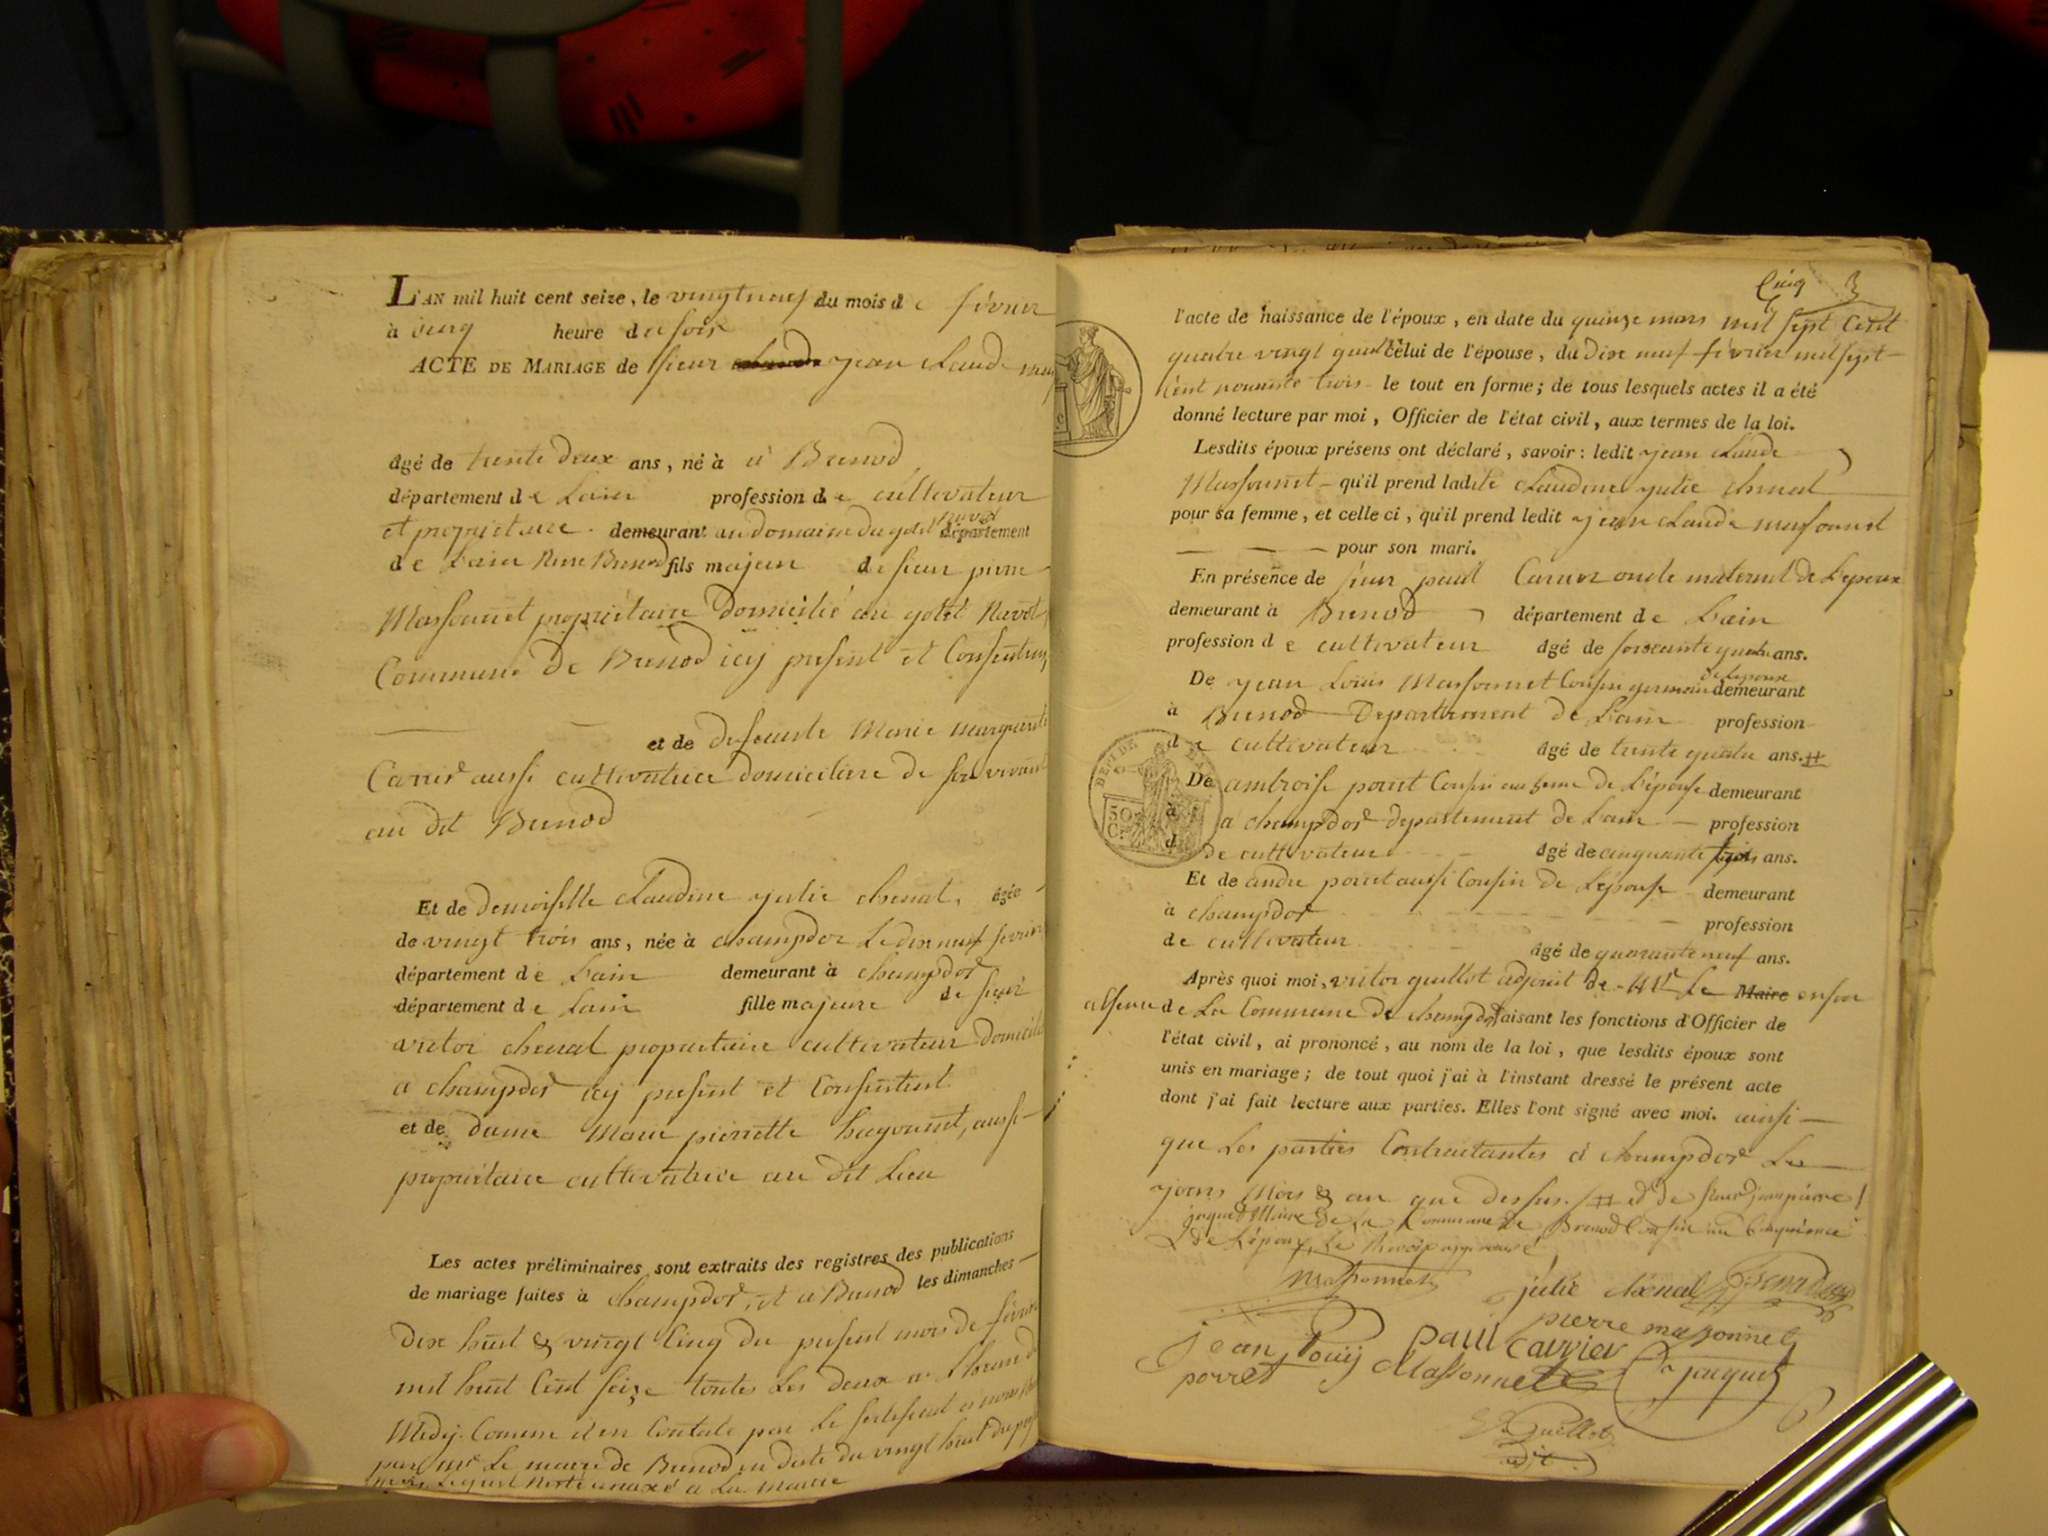 L'AN mil huit cent seize, le vingt neuf du mois de février
à cinq heure du soir
ACTE DE MARIAGE de sieur jean Claude
âgé de trente deux ans, né à a Brenod
département de Lain profession de cultivateur
et propriétaire demeurant au domaine du département
de Lain Brenod fils majeur de sieur pierre
Massonnet propriétaire domicilié au
Commune de Brenod icy présent et Consentent
et de defeunte Marie marguerite
Carrier aussi cultivatrice domiciliere de son vivant
au dit Brenod
Et de demoiselle Claudine julie chenal, âgée
de vingt trois ans, née à champdor Le dix neuf février
département de Lain demeurant à champdor
département de Lain fille majeure de sieur
victor chenal propriétaire cultivateur domicilié
a champdor icy présent et Consentent
et de dame Marie pierrette aussi
propriétaire cultivatrice au dit Lieu
Les actes préliminaires sont extraits des registres des publications
de mariage faites à champdor, et a Brenod les dimanches
dix huit & vingt Cinq du présent mois de février
mil huit Cent seize toutes les deux a Lheure de
Midy Comme il en Conste par le
par Mr Le maire de Brenod en date du vingt huit
a La Mairie
Cinq 3
l'acte de naissance de l'époux, en date du quinze mars mil sept Cent
quatre vingt quatre celui de l'épouse, du dix neuf février mil sept
Cent nonante trois le tout en forme; de tous lesquels actes il a été
donné lecture par moi, Officier de l'état civil, aux termes de la loi.
Lesdits époux présens ont déclaré, savoir: ledit jean Claude
Massonnet qu'il prend ladite Claudine julie chenal
pour sa femme, et celle ci, qu'il prend ledit jean Claude massonnet
pour son mari.
En présence de sieur paul Carrier oncle maternel de Lepoux
demeurant à Brenod département de Lain
profession de cultivateur âgé de soixante quatre ans.
De jean Louis Massonnet Cousin germain de Lepoux demeurant
à Brenod Departement de Lain profession
de cultivateur âgé de trente quatre ans. #
De ambroise porret Cousin de Lépouse demeurant
à a champdor departement de Lain profession
d de cultivateur âgé de cinquante trois ans.
Et de andré porret aussi Cousin de Lépouse demeurant
à champdor profession
de cultivateur âgé de quarante neuf ans.
Après quoi moi, victor guillot adjoint de Mr Le Maire en son
absence de La Commune de champdor faisant les fonctions d'Officier de
l'état civil, ai prononcé, au nom de la loi, que lesdits époux sont
unis en mariage; de tout quoi j'ai à l'instant dressé le présent acte
dont j'ai fait lecture aux parties. Elles l'ont signé avec moi. ainsi
que Les parties Contractantes a champdor Les
jours Mois & an que dessus. # et de sieur jean pierre
jaquet Maire de La Commune de Brenod Cousin
de L'époux, Le Renvoi approuvé
Massonnet
julie chenal
pierre massonnet
jean Louis Massonnet
paul carrier
jaquet
porret
Guillot
adjt
50
C.